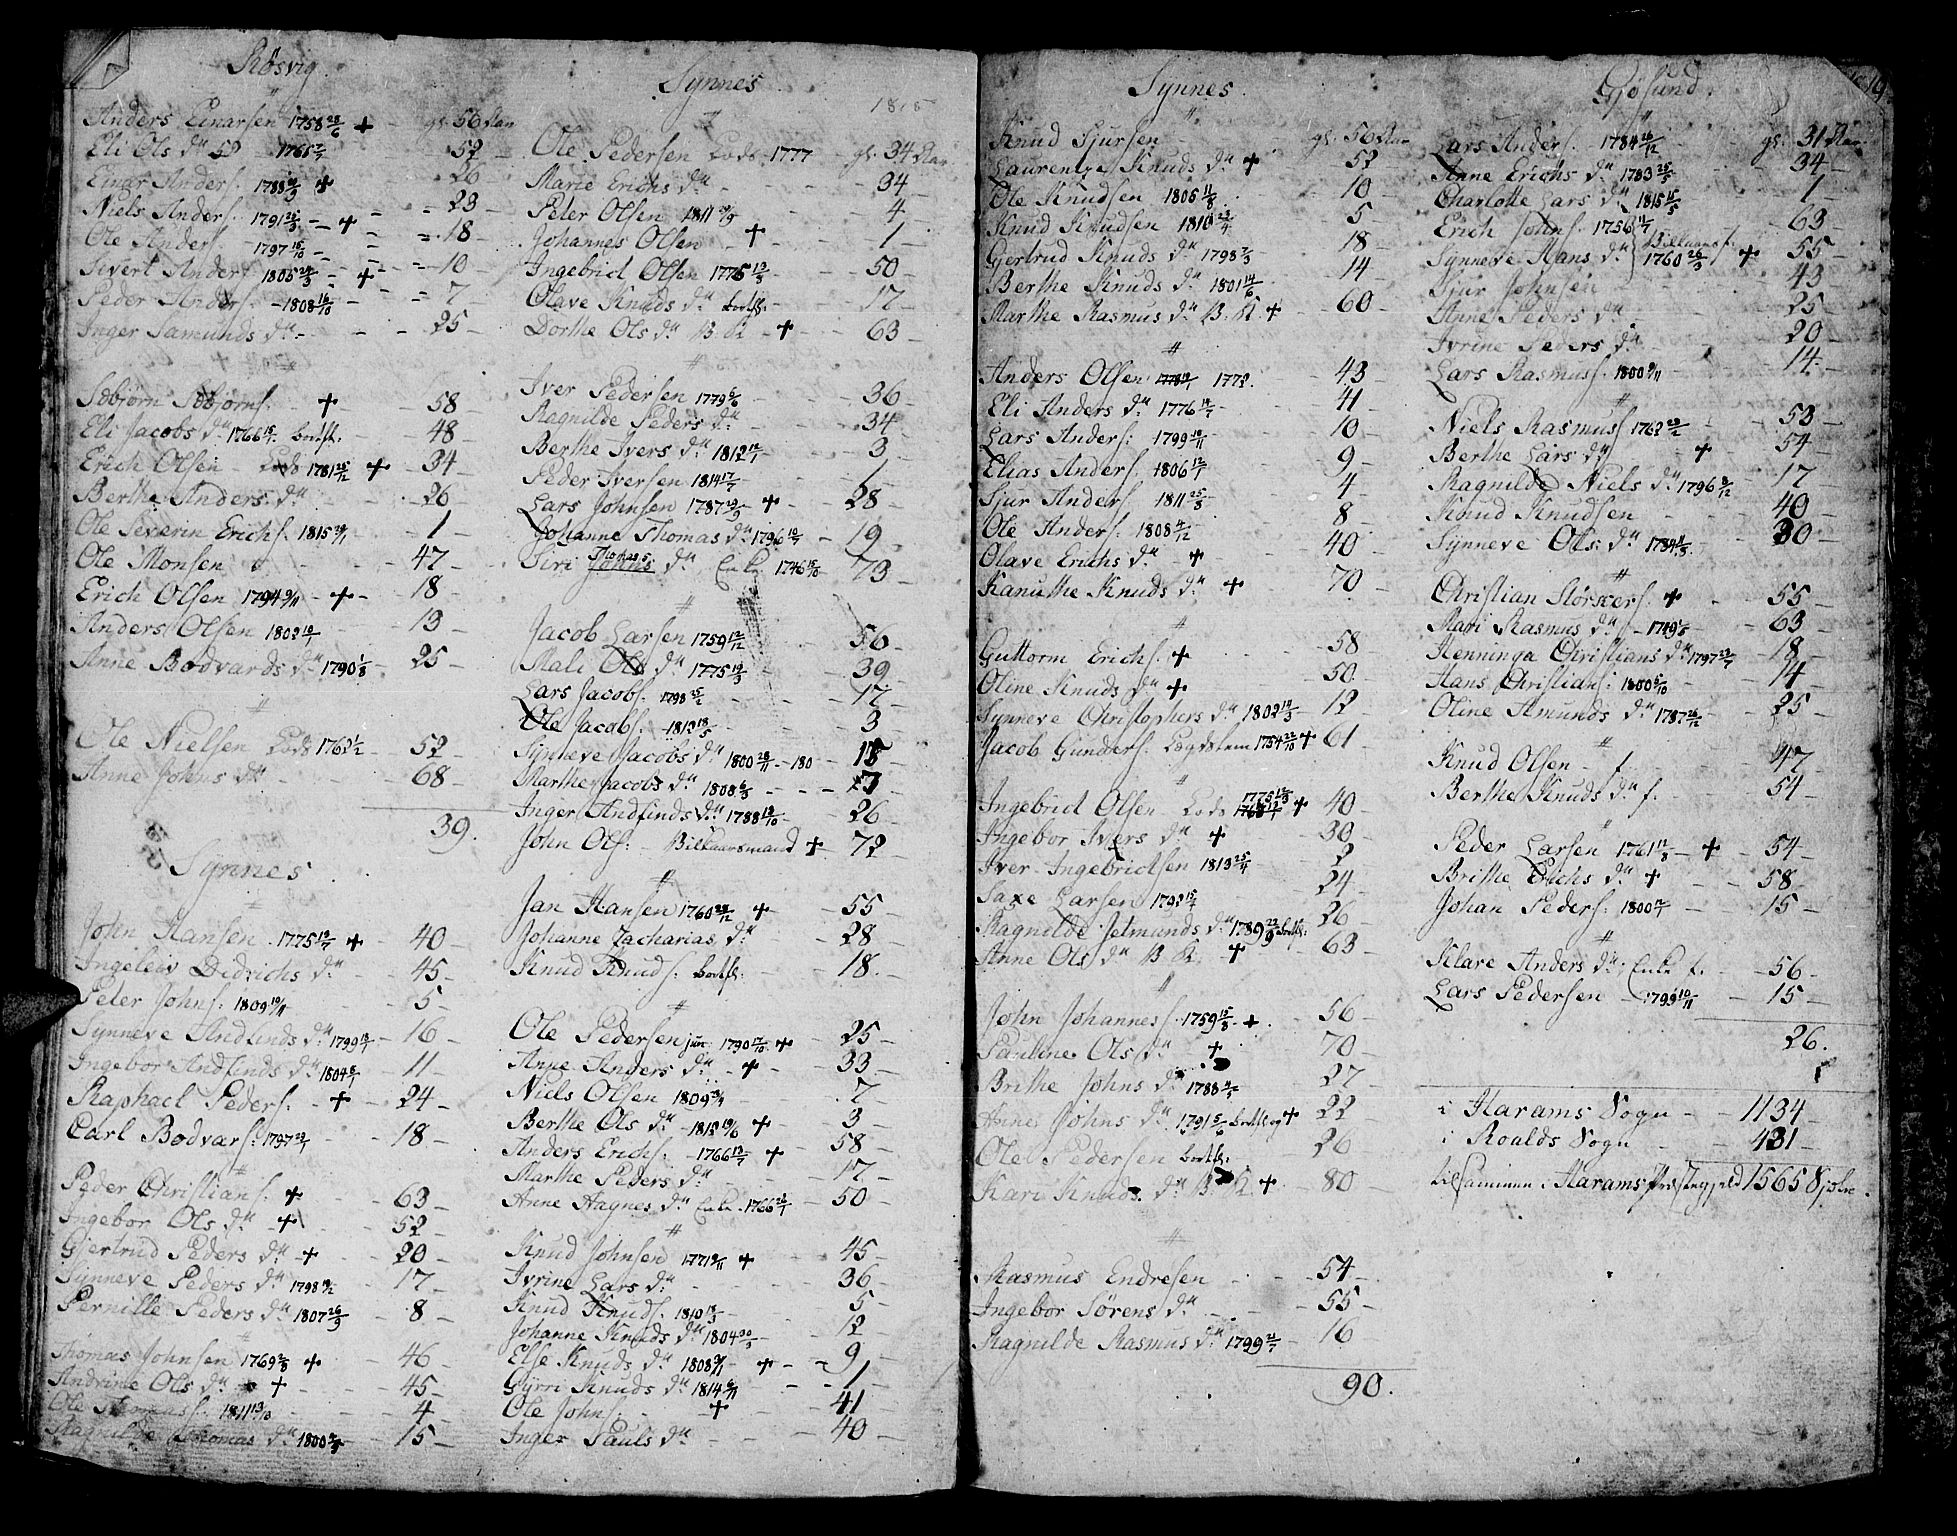 Røsvig
"
Anders Einarsen 1758 28/6 + gl. 56 Aar
Eli Ols d. 1765 52
Einar Anders. 1788 + 26
Niels Anders. 1791 25/3 + 23
Ole Anders. 1797 15/10 18
Sivert Anders. 1805 + 10
Peder Anders. 1808 16/10 7
Inger Samunds d. 25
#
Sæbjørn Sæbjørns. + 58
Eli Jacobs d. 1766 15/7 bortfl. 48
Erich Olsen Lods 1781 25/12 + 34
Berthe Anders d. 26
Ole Severin Erichs. 1815 1
Ole Monsen 47
Erich Olsen 1794 + 18
Anders Olsen 1802 13
Anne Bodvards d. 1790 1/8 25
#
Ole Nielsen Lods 1762 1/2 52
Anne Johns d. 68
39.
Synnes
"
John Hansen 1775 + 40
Ingeleiv Didrichs d. 45
Peter Johns. 1809 5
Synneve Andfinds d. 1799 16
Ingebor Andfinds d. 1804 11
Raphael Peders. + 24
Carl Bodvars. 1797 18
#
Peder Christians. + 63
Ingebor Ols d. + 52
Gjertrud Peders d. + 20
Synneve Peders d. 1798 17
Pernille Peders d. 1807 26/9 8
#
Thomas Johnsen 1769 + 46
Andrine Ols d. + 45
Ole Thomass. 1811 13/10 4
Ragnilde Thomas d. 1800 15
Synnes
"
1815
Ole Pedersen Lods 1777 gl. 34 Aar
Marie Erichs d. 34
Peter Olsen 1811 4
Johannes Olsen + 1
Ingebrict Olsen 1775 13/3 50
Olave Knuds d. bortfl. 17
Dorthe Ols d. B. K + 63
#
Iver Pedersen 1779 36
Ragnilde Peders d. 34
Berthe Ivers d. 1812 12/1 3
Peder Iversen 1814 17/7 1
Lars Johnsen 1787 + 28
Johanne Thomas d. 1796 19
Siri Johns Thomas d. Enke 1746 73
#
Jacob Larsen 1759 12/12 56
Mali Ols d. 1775 39
Lars Jacobs. 1798 17
Ole Jacobs. 1813 18/5 3
Synneve Jacobs d. 1800 28/11 180 15
Marthe Jacobs d. 1808 7
Inger Andfinds d. 1788 26
John Ols. Billaarsmand + 72
#
Jan Hansen 1760 + 55
Johanne Zacharias d. 28
Knud Knuds. bortfl. 18
#
Ole Pedersen jun. 1790 17/10 + 25
Anne Anders d. + 33
Niels Olsen 1809 7
Berthe Ols d. 1812 19/6 + 3
Anders Erichs. 1766 13/7 + 58
Marthe Peders d. 17
Anne Hagnes d. Enke 1766 50
#
Knud Johnsen 1771 + 45
Ivrine Lars d. 36
Knud Knuds. 1810 13/3 5
Johanne Knuds d. 1804 12
Else Knuds d. 1808 + 9
Gÿrri Knuds d. 1814 6/11 1
Ole Johns. + 41
Inger Pauls d. 40
Synnes
"
Knud Sjursen gl. 56 Aar
Laurentze Knuds d. + 52
Ole Knudsen 1805 11/8 10
Knud Knudsen 1810 5
Gertrud Knuds d. 1798 18
Berthe Knuds d. 1801 14/6 14
Marthe Rasmus d. B. K + 60
#
Anders Olsen 1772 43
Eli Anders d. 1776 41
Lars Anders. 1799 10/11 10
Elias Anders. 1806 12/1 9
Sjur Anders. 1811 25/3 4
Ole Anders. 1808 4/12 8
Olave Erichs d. + 40
Kanuthe Knuds d. + 70
"
Guttorm Erichs. + 58
Oline Knuds d. + 50
Synneve Christophers d. 1802 12
Jacob Gunders. Lægdslem 1754 22/10 + 61
"
Ingebrict Olsen Lods 1775 13/3 + 40
Ingebor Ivers d. + 30
Iver Ingebrictsen 1813 25/4 2
Saxe Larsen 1792 24
Ragnilde Jetmunds d. 1789 bortfl. 26
Anne Ols d. B. K. + 63
"
John Johannes. 1759 15/8 + 56
Pauline Ols d. + 70
Brithe Johns d. 1788 27
Anne Johns d. 1791 bortfl. og + 22
Ole Pedersen bortfl. 26
Kari Knuds d. B. K + 80
#
Rasmus Endresen 54
Ingebor Sørens d. 55
Ragnilde Rasmus d. 1799 16
90.
Gjøsund
19
"
Lars Anders. 1784 26/12 gl. 31 Aar
Anne Erichs d. 1783 25/5 34
Charlotte Lars d. 1815 1
Erich Johns. 1756 63
Synneve Hans d. 1760 26/3 Billaarsf. + 55
Sjur Johnsen 43
Anne Peders d. 25
Ivrine Peders d. 20
Lars Rasmuss. 1800 14
#
Niels Rasmuss. 1762 53
Berthe Lars d. + 54
Ragnilde Niels d. 1796 8/12 17
Knud Knudsen 40
Synneve Ols d. 1784 30
#
Christian Størkers. + 55
Mari Rasmus d. 1749 63
Henninga Christians d. 1797 18
Hans Christians. 1800 5/10 14
Oline Amunds d. 1787 26/12 25
#
Knud Olsen f. 47
Berthe Knuds d. f. 54
"
Peder Larsen 1761 11/8 + 54
Brithe Erichs d. + 58
Johan Peders. 1800 15
#
Klare Anders d. Enke f. 56
Lars Pedersen 1799 10/11 15
26.
i Harams Sogn 1134
i Roalds Sogn 431
tilsammen i Harams Præstegjeld 1565 Sjæle.